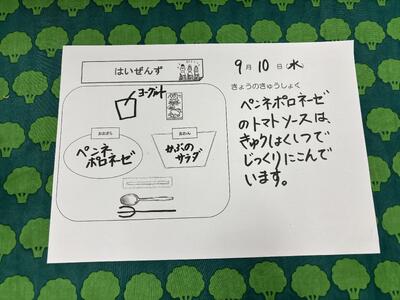 はいぜんず
9月10日(水)
ヨーグルト
おおざら
ペンネ
ボロネーゼ
おわん
かぶの
サラダ
きょうのきゅうしょく
ペンネボロネーゼ
のトマトソースは、
きゅうしょくしつで
じっくりにこんで
います。